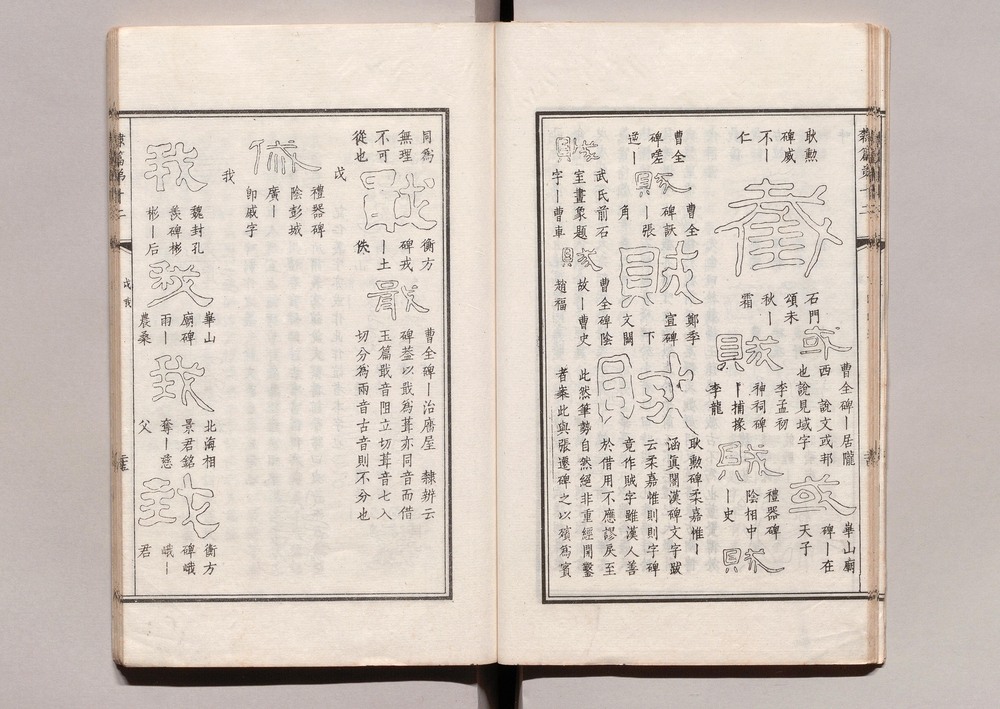 耿勳
碑威
不｜
仁
截
石門
頌未
秋｜
霜
或
曹全碑｜居隴
西 說文或邦
也說見域字
或
華山廟
碑｜在
天子
賊
李孟初
神祠碑
｜捕掾
李龍
賊
禮器碑
陰相中
｜史
賊
曹全
碑嗟
逆｜
賊
曹全
碑訞
｜張
角
賊
鄭季
宣碑
下
文闕
賊
耿勳碑柔嘉惟｜
涵眞閣漢碑文字跋
云柔嘉惟則則字碑
竟作賊字雖漢人善
於借用不應謬戾至
此然筆勢自然絕非重經開鑿
者案此與張遷碑之以殯為賓
賊
武氏前石
室畫象題
字｜曹車
賊
曹全碑陰
故｜曹史
趙福
同為
無理
不可
從也
戰
衡方
碑戎
｜士
佚
戢
曹全碑｜治廧屋 隸辨云
碑葢以戢為葺亦同音而借
玉篇戢音阻立切葺音七入
切分為兩音古音則不分也
禮器碑
陰彭城
廣｜
即戚字
我
我
魏封孔
羨碑彬
彬｜后
我
華山
廟碑
雨｜
農桑
我
北海相
景君銘
奪｜慈
父
我
衡方
碑峨
峨｜
君